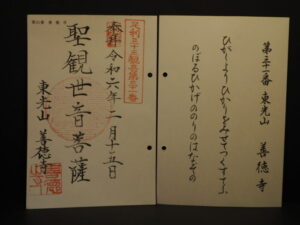 第三十一番 東光山 善徳寺
ひがしより ひかりをみせて つくすてふ
のぼるひかげの のりのはなぞの
足利三十三観音第三十一番
奉拝 令和六年二月十五日
聖観世音菩薩
東光山 善徳寺